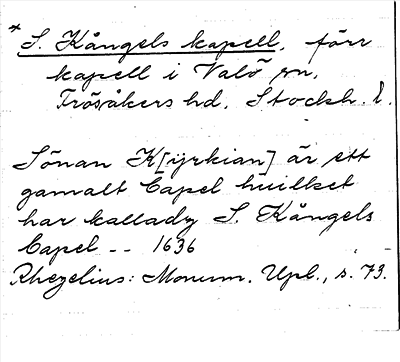 * S. Kångels kapell, förr
kapell i Valö sn,
Frösåkers hd, Stockh. l.
Sönan K[ÿrkian] är ett
gamalt Capel huilket
har kallady S. Kångels
Capel -- 1636
Rhezelius: Monum. Upl., s. 73.